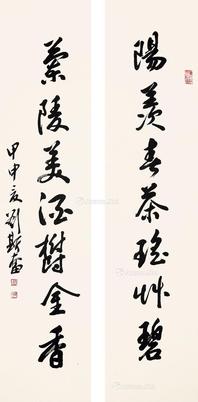 陽羨春茶瑤艸碧
蘭陵美酒鬱金香
甲申夏劉斯奮